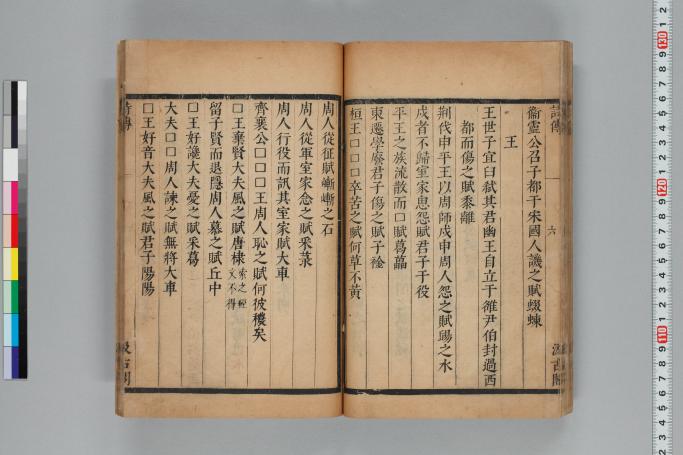 詩傳
六
汲古閣
衞靈公召子都于宋國人譏之賦蝃蝀
王
王世子宜臼弑其君幽王自立于雒尹伯封過西
都而傷之賦黍離
荆伐申平王以周師戍申周人怨之賦之水
戍者不歸室家思怨賦君子于役
平王之族流散而□賦葛藟
東遷學廢君子傷之賦子衿
桓王□□□卒苦之賦何草不黃
周人從征賦嶄嶄之石
周人從軍室家念之賦采菉
周人行役而訊其室家賦大車
齊襄公□□□王周人恥之賦何彼穠矣
□王棄賢大夫風之賦唐棣 索之經文不得
留子賢而退隱周人慕之賦丘中
□王好讒大夫憂之賦采葛
大夫□□周人諫之賦無將大車
□王好音大夫風之賦君子陽陽
詩傳
汲古閣